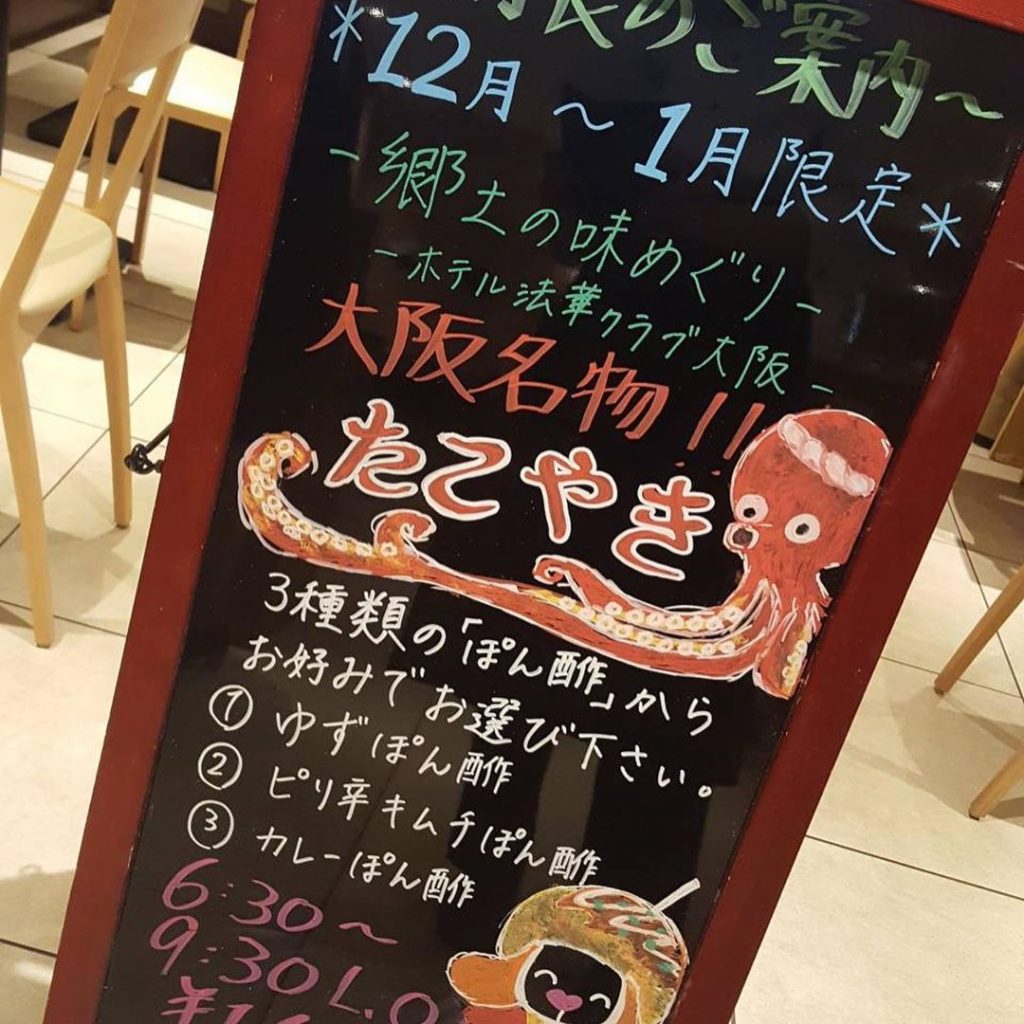 のご案内～
*12月～1月限定*
-郷土の味めぐり-
-ホテル法華クラブ大阪-
大阪名物!!
たこやき
3種類の「ぽん酢」から
お好みでお選び下さい。
① ゆずぽん酢
② ピリ辛キムチぽん酢
③ カレーぽん酢
6:30～
9:30 L.O